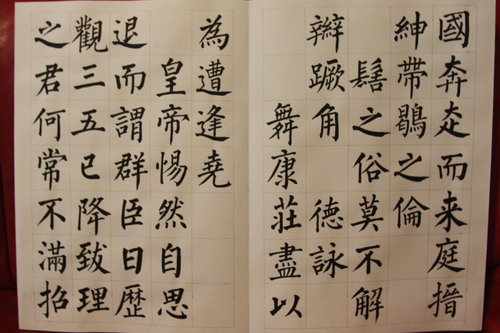 國奔走而来庭搢
紳帶鶡之倫
之俗莫不解
辮蹶角 德詠
舞康莊盡以
為遭逢堯
皇帝惕然自思
退而謂群臣曰歷
觀三五已降致理
之君何常不滿招